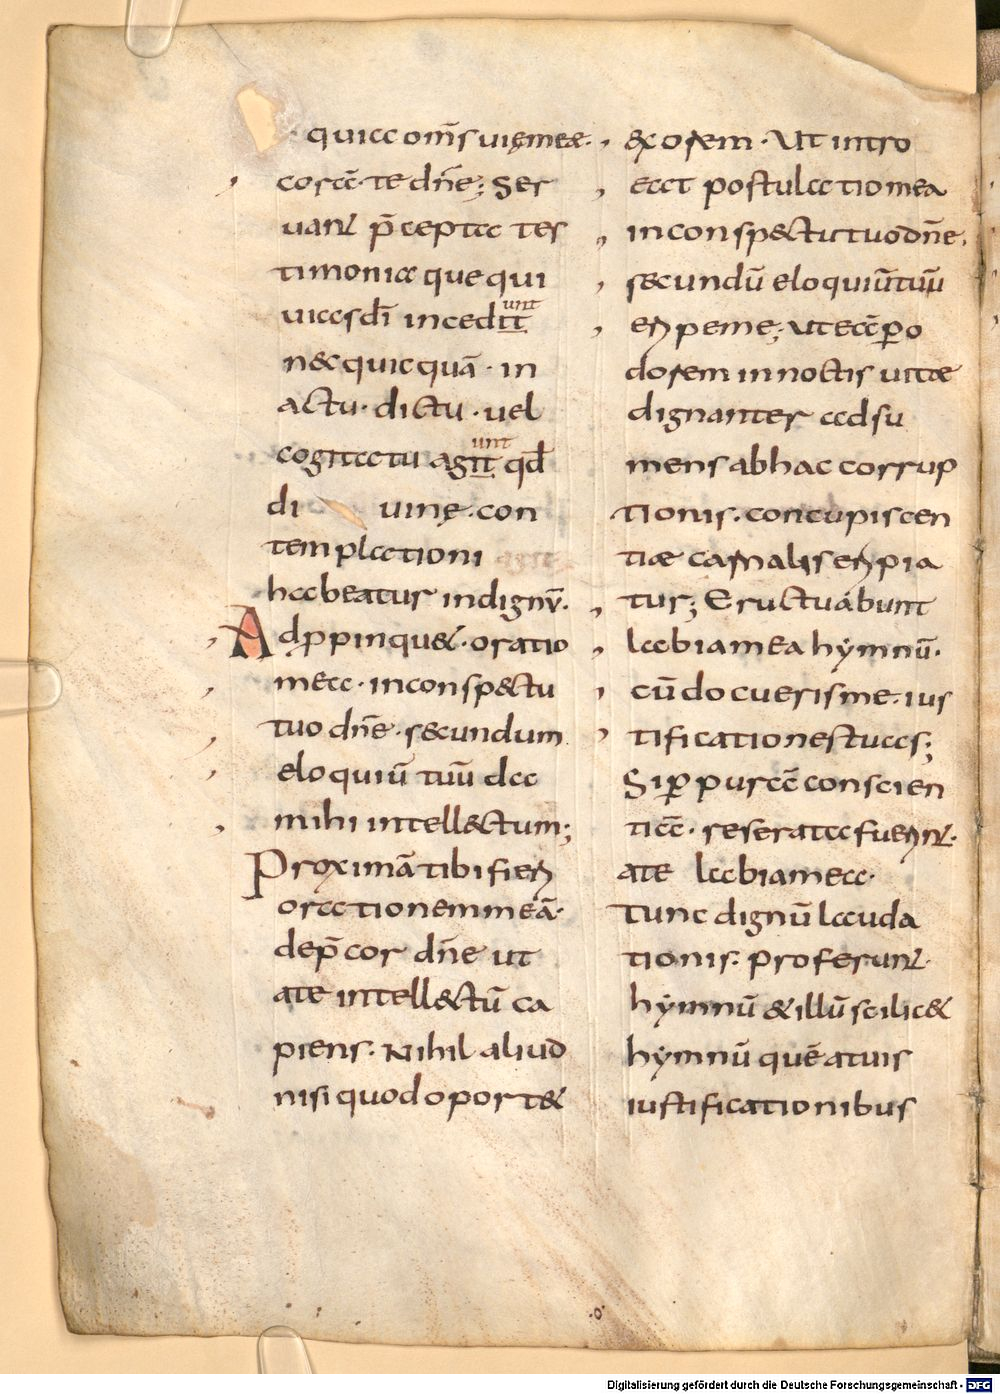 quia om̄s uiȩ meae·
corā· te dn̄e; Ser
uant p̄cepta tes
timonia que qui
uias dī incedit unt
nec quicquā · in
actu · dictu · uel
cogitatu agit unt qd̄
di uinȩ · con
templationi
habeatur indignū·
Adp̱pinquet · oratio
mea · in conspectu
tuo dn̄e · secundum
eloquiū tuū da
mihi intellectum;
Proximā tibi fieri
orationem meā·
dep̄cor dn̄e ut
a te intellectū ca
piens · Nihil aliud
nisi quod oportet
exorem · Ut intro
eat postulatio mea
in conspectu tuo dn̄e·
secundū eloquiū tuū
eripe me; Ut eā ꝑo
dorem in noctis uitae
dignanter adsu
mens ab hac corrup
tionis · concupiscen
tiae carnalis eripia
tur; Eructuabunt
labia mea hẏmnū·
cū docueris me · ius
tificationes tuas;
Si ꝑ purā conscien
tiā · reserata fuerint·
a te labia mea·
tunc dignū lauda
tionis · proferunt·
hẏmnū & illū scilicet
hẏmnū quē a tuis
iustificationibus
Digitalisierung gefördert durch die Deutsche Forschungsgemeinschaft - DFG